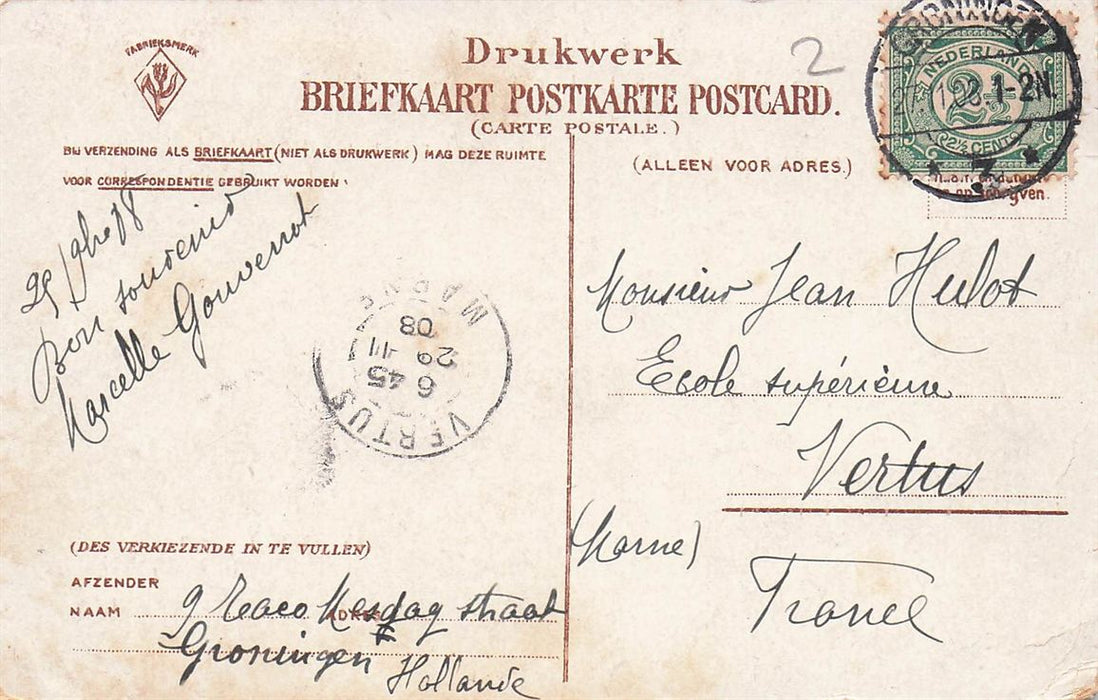 FABRIEKSMERK
Drukwerk
2
BRIEFKAART POSTKARTE POSTCARD.
(CARTE POSTALE.)
BIJ VERZENDING ALS BRIEFKAART (NIET ALS DRUKWERK) MAG DEZE RUIMTE
VOOR CORRESPONDENTIE GEBRUIKT WORDEN
(ALLEEN VOOR ADRES.)
GRONINGEN
1-2N.
3
NEDERLAND
2½
2½ CENT
Bon souvenir
Marcelle Gouverrot
VERTUS
6 45
29 -11
08
MARNE
Monsieur Jean Hulot
Ecole supérieure
Vertus
(Marne)
France
(DES VERKIEZENDE IN TE VULLEN)
AFZENDER
NAAM 9 Taco Mesdag straat
ADRES
Groningen
Hollande